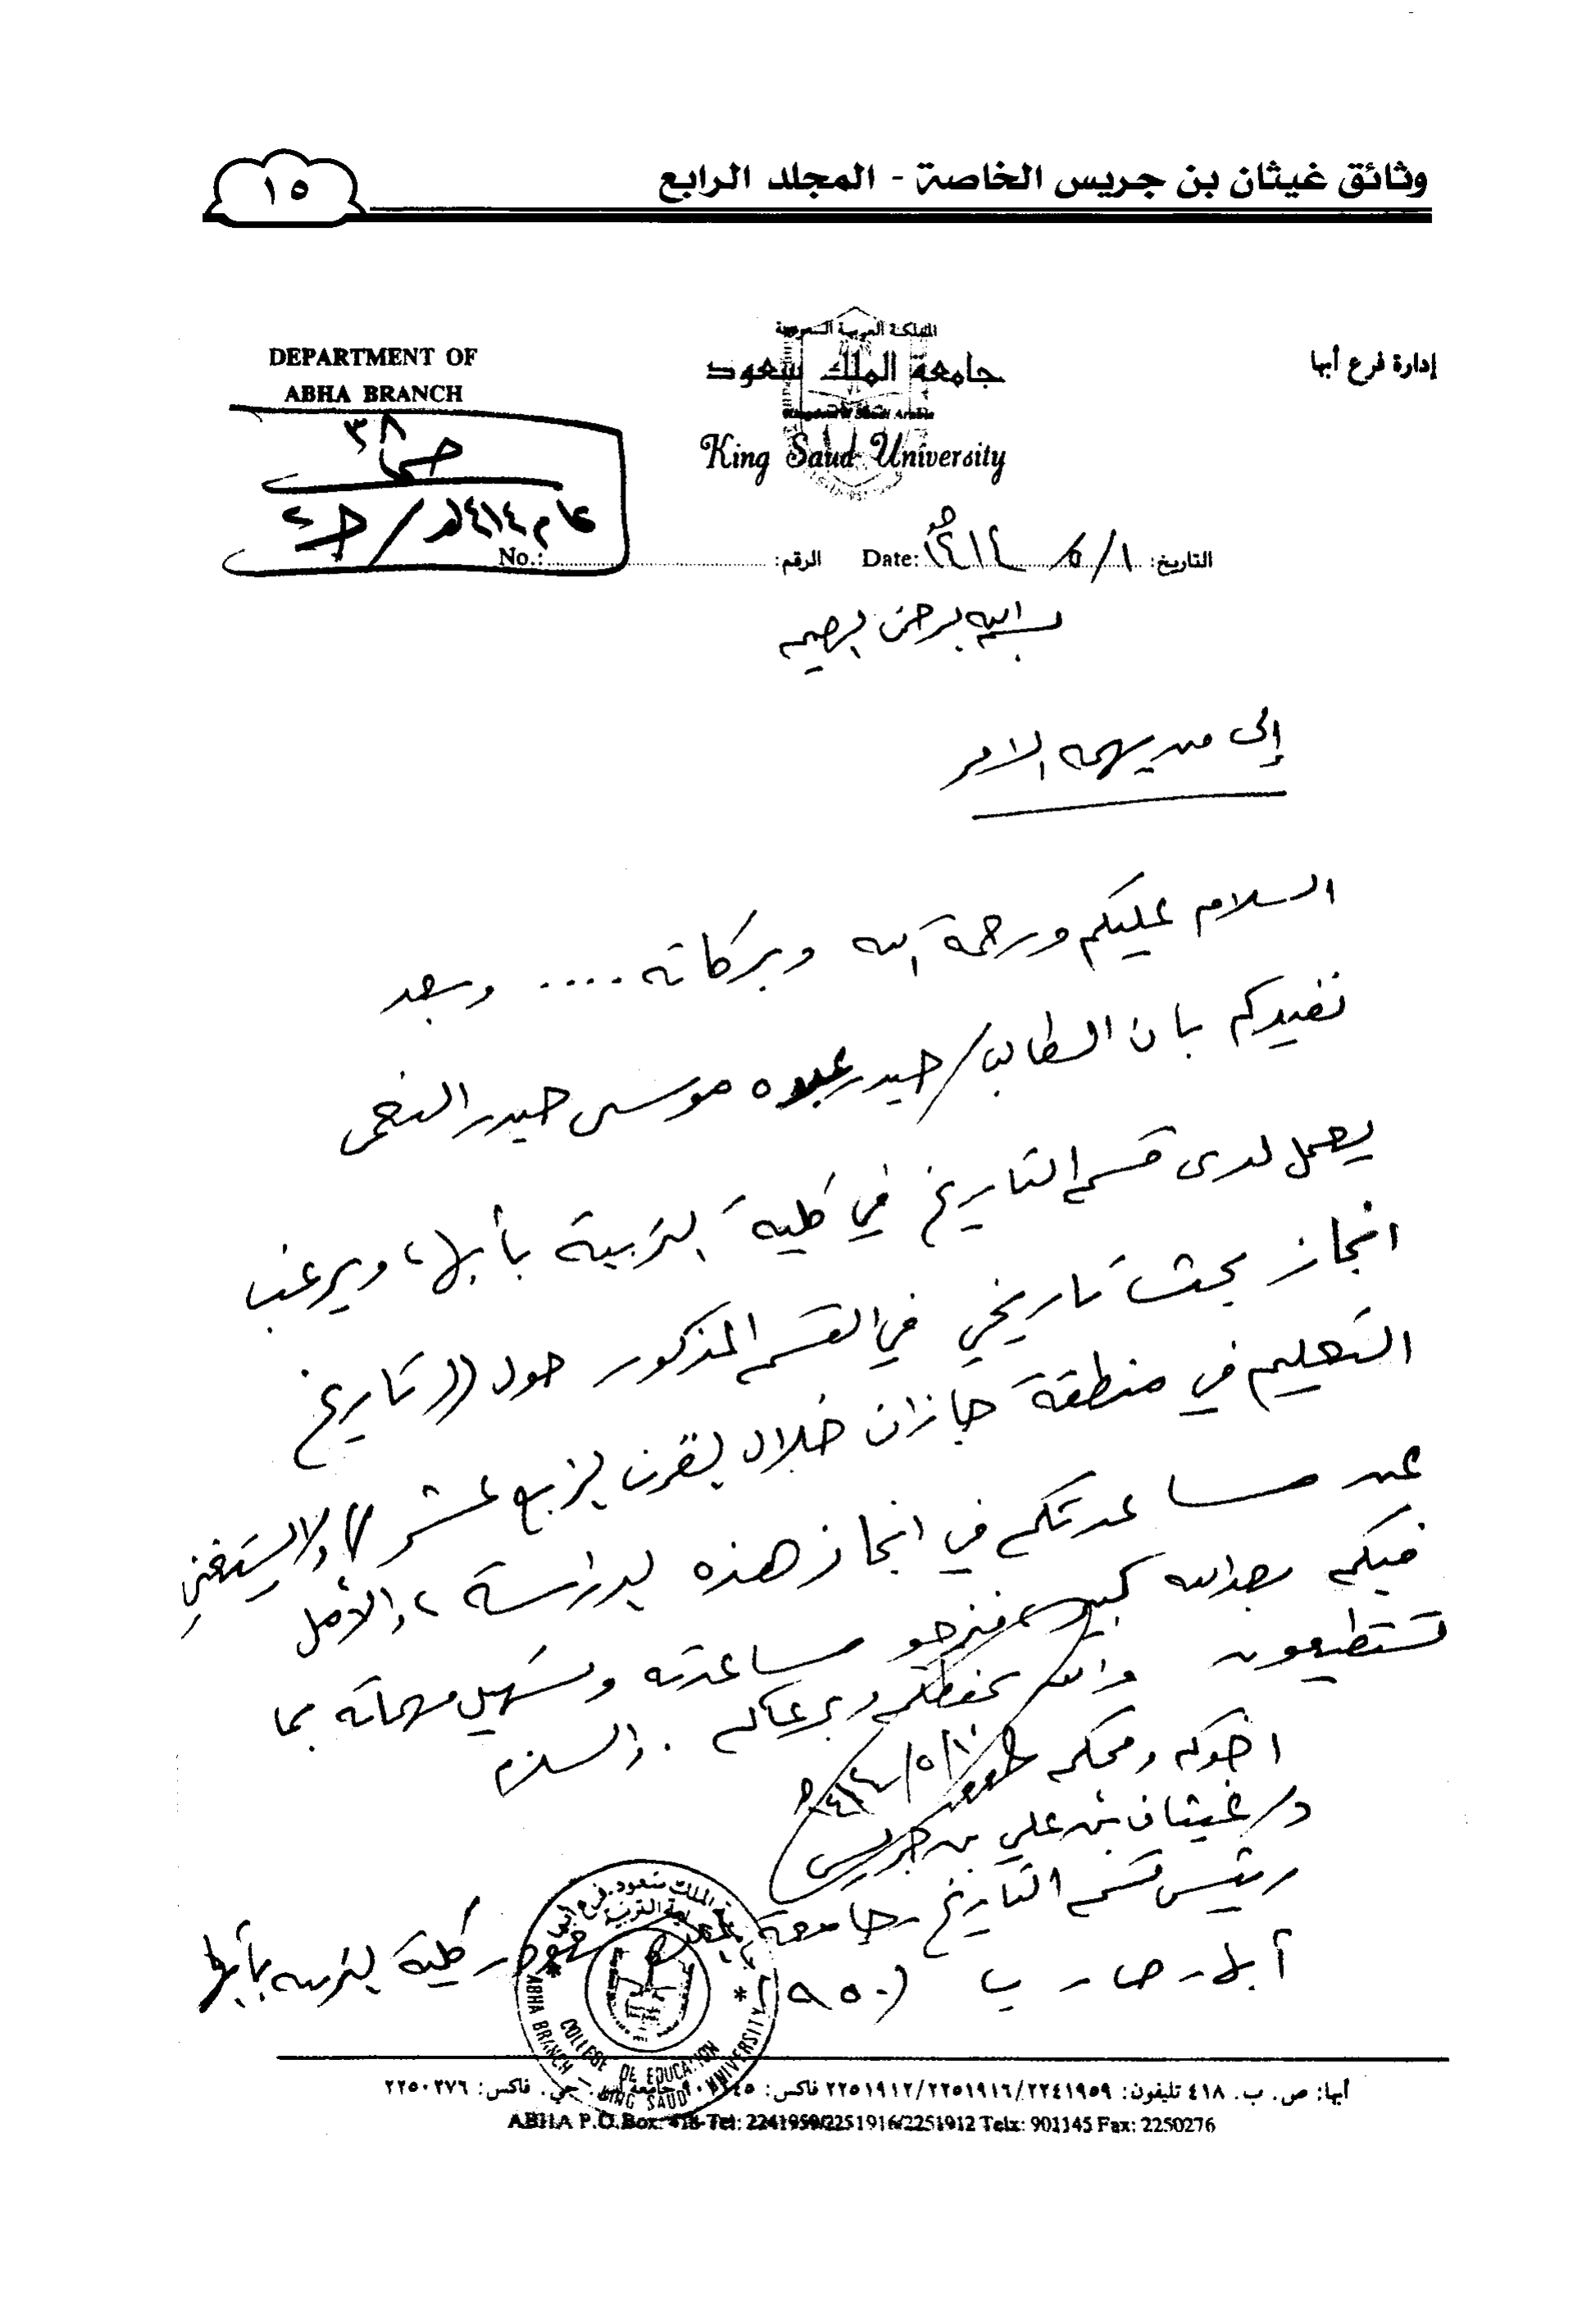 وثائق غيثان بن جريس الخاصة - المجلد الرابع
١٥
إدارة فرع أبها
المملكة العربية السعودية
جامعة الملك سعود
Kingdom of Saudi Arabia
King Saud University
DEPARTMENT OF
ABHA BRANCH
٣٨
عام ١٤١٤هـ /
التاريخ: ١/ ٥/ ١٤١٤هـ Date: الرقم: No.:
بسم الله الرحمن الرحيم
إلى من يهمه الامر
السلام عليكم ورحمة الله وبركاته .... وبعد
نفيدكم بان الطالب/ حيدر عبده موسى حيدر النعمي
يعمل لدى قسم التاريخ في كلية التربية بأبها، ويرغب
انجاز بحث تاريخي في القسم المذكور حول ((تاريخ
التعليم في منطقة جازان خلال القرن الرابع عشر)) ولا يستغني
عن مساعدتكم في انجاز هذه الدراسة، والأمل
فيكم بعد الله كبير، فنرجو مساعدته وتسهيل مهماته بما
تستطيعون والله يحفظكم ويرعاكم. والسلام
اخوكم ومحبكم ١/٥/١٤١٤هـ
د/ غيثان بن علي بن جريس
رئيس قسم التاريخ - جامعة الملك سعود - كلية التربية بأبها
أبها - ص - ب (٩٥٠)
الملك سعود - فرع أبها
كلية التربية
COLLEGE OF EDUCATION
ABHA BRANCH - KING SAUD UNIVERSITY
أبها: ص. ب. ٤١٨ تليفون: ٢٢٥١٩١٢/٢٢٥١٩١٦/٢٢٤١٩٥٩ فاكس: ٩٠١١٤٥ جامعة جي. فاكس: ٢٢٥٠٢٧٦
ABHA P.O.Box: 418-Tel: 2241959/2251916/2251912 Telx: 901145 Fax: 2250276